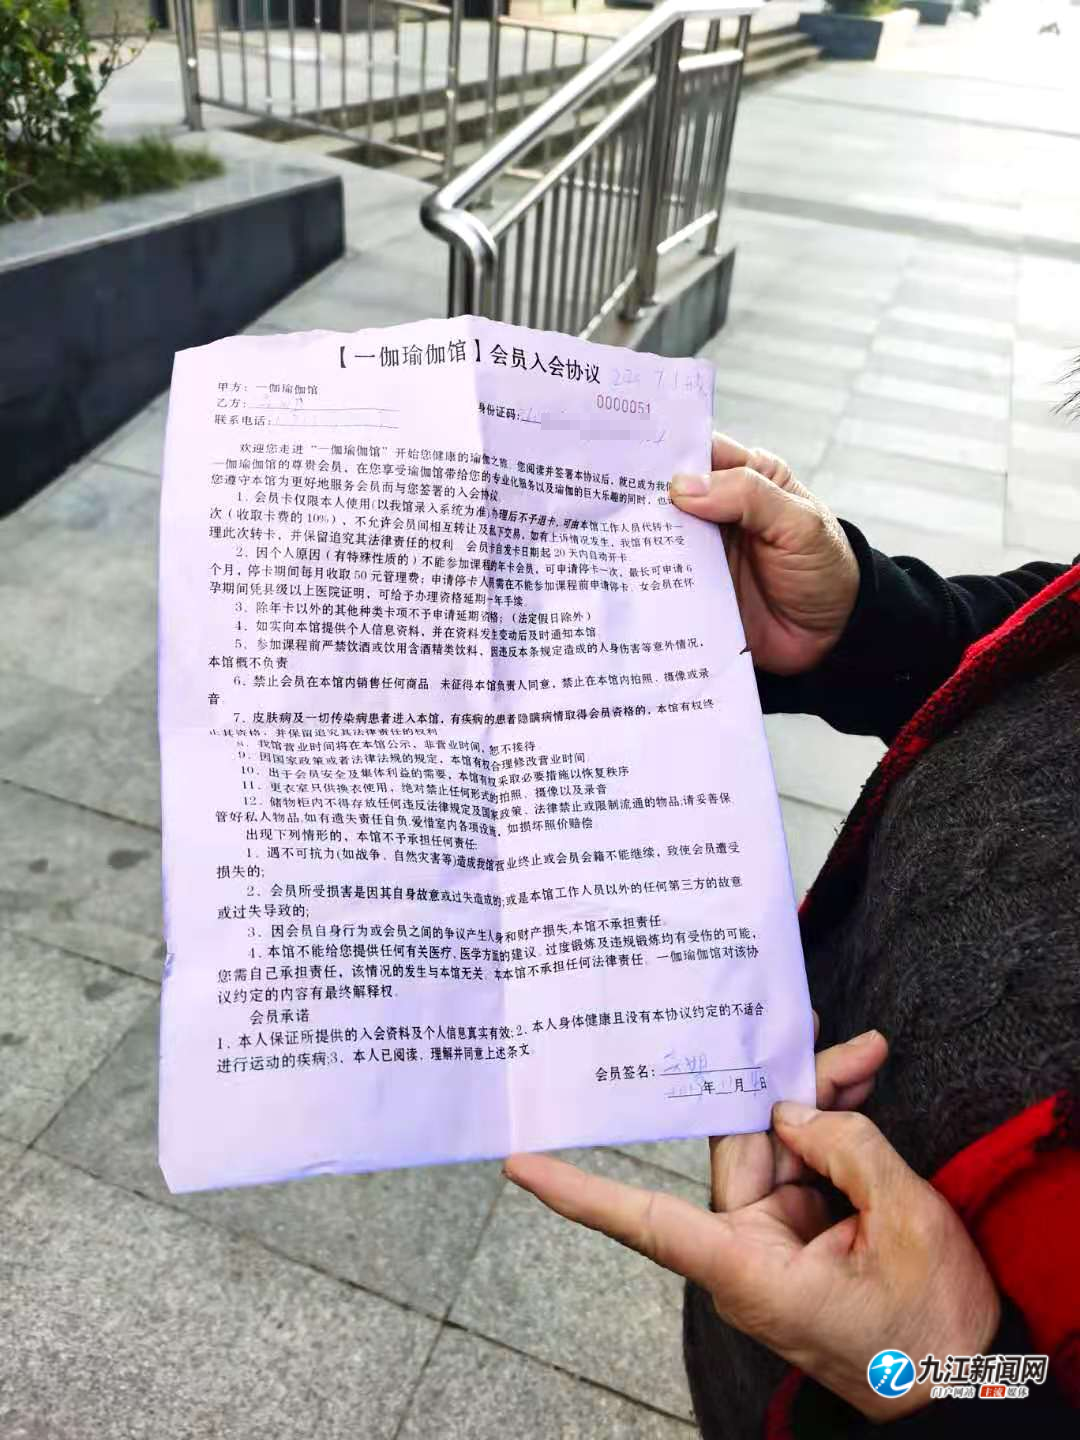 【一伽瑜伽馆】会员入会协议
甲方：一伽瑜伽馆
0000051
乙方：
身份证码：
联系电话：
欢迎您走进“一伽瑜伽馆”开始您健康的瑜伽之旅。您阅读并签署本协议后，就已成为我们
一伽瑜伽馆的尊贵会员，在您享受瑜伽馆带给您的专业化服务以及瑜伽的巨大乐趣的同时，也
您遵守本馆为更好地服务会员而与您签署的入会协议
1．会员卡仅限本人使用(以我馆录入系统为准)办理后不予退卡，可由本馆工作人员代转卡一
次（收取卡费的10%），不允许会员间相互转让及私下交易，如有上诉情况发生，我馆有权不受
理此次转卡，并保留追究其法律责任的权利 会员卡自发卡日期起20天内自动开卡
2．因个人原因（有特殊性质的）不能参加课程的年卡会员，可申请停卡一次，最长可申请6
个月，停卡期间每月收取50元管理费；申请停卡人员需在不能参加课程前申请停卡、女会员在怀
孕期间凭县级以上医院证明，可给予办理资格延期一年手续
3．除年卡以外的其他种类卡项不予申请延期资格；（法定假日除外）
4．如实向本馆提供个人信息资料，并在资料发生变动后及时通知本馆
5．参加课程前严禁饮酒或饮用含酒精类饮料，因违反本条规定造成的人身伤害等意外情况，
本馆概不负责
6．禁止会员在本馆内销售任何商品 未征得本馆负责人同意，禁止在本馆内拍照、摄像或录
音
7．皮肤病及一切传染病患者进入本馆，有疾病的患者隐瞒病情取得会员资格的，本馆有权终
止其资格，并保留追究其法律责任的权利
8．我馆营业时间将在本馆公示，非营业时间，恕不接待
9．因国家政策或者法律法规的规定，本馆有权合理修改营业时间
10．出于会员安全及集体利益的需要，本馆有权采取必要措施以恢复秩序
11．更衣室只供换衣使用，绝对禁止任何形式的拍照、摄像以及录音
12．储物柜内不得存放任何违反法律规定及国家政策、法律禁止或限制流通的物品;请妥善保
管好私人物品,如有遗失责任自负.爱惜室内各项设施，如损坏照价赔偿
出现下列情形的，本馆不予承担任何责任:
1．遇不可抗力(如战争、自然灾害等)造成我馆营业终止或会员会籍不能继续，致使会员遭受
损失的;
2．会员所受损害是因其自身故意或过失造成的;或是本馆工作人员以外的任何第三方的故意
或过失导致的;
3．因会员自身行为或会员之间的争议产生人身和财产损失,本馆不承担责任。
4．本馆不能给您提供任何有关医疗、医学方面的建议。过度锻炼及违规锻炼均有受伤的可能，
您需自己承担责任，该情况的发生与本馆无关。本本馆不承担任何法律责任。一伽瑜伽馆对该协
议约定的内容有最终解释权.
会员承诺
1．本人保证所提供的入会资料及个人信息真实有效;2．本人身体健康且没有本协议约定的不适合
进行运动的疾病;3．本人已阅读、理解并同意上述条文
会员签名：
年 月 日
九江新闻网
门户网站 主流 媒体